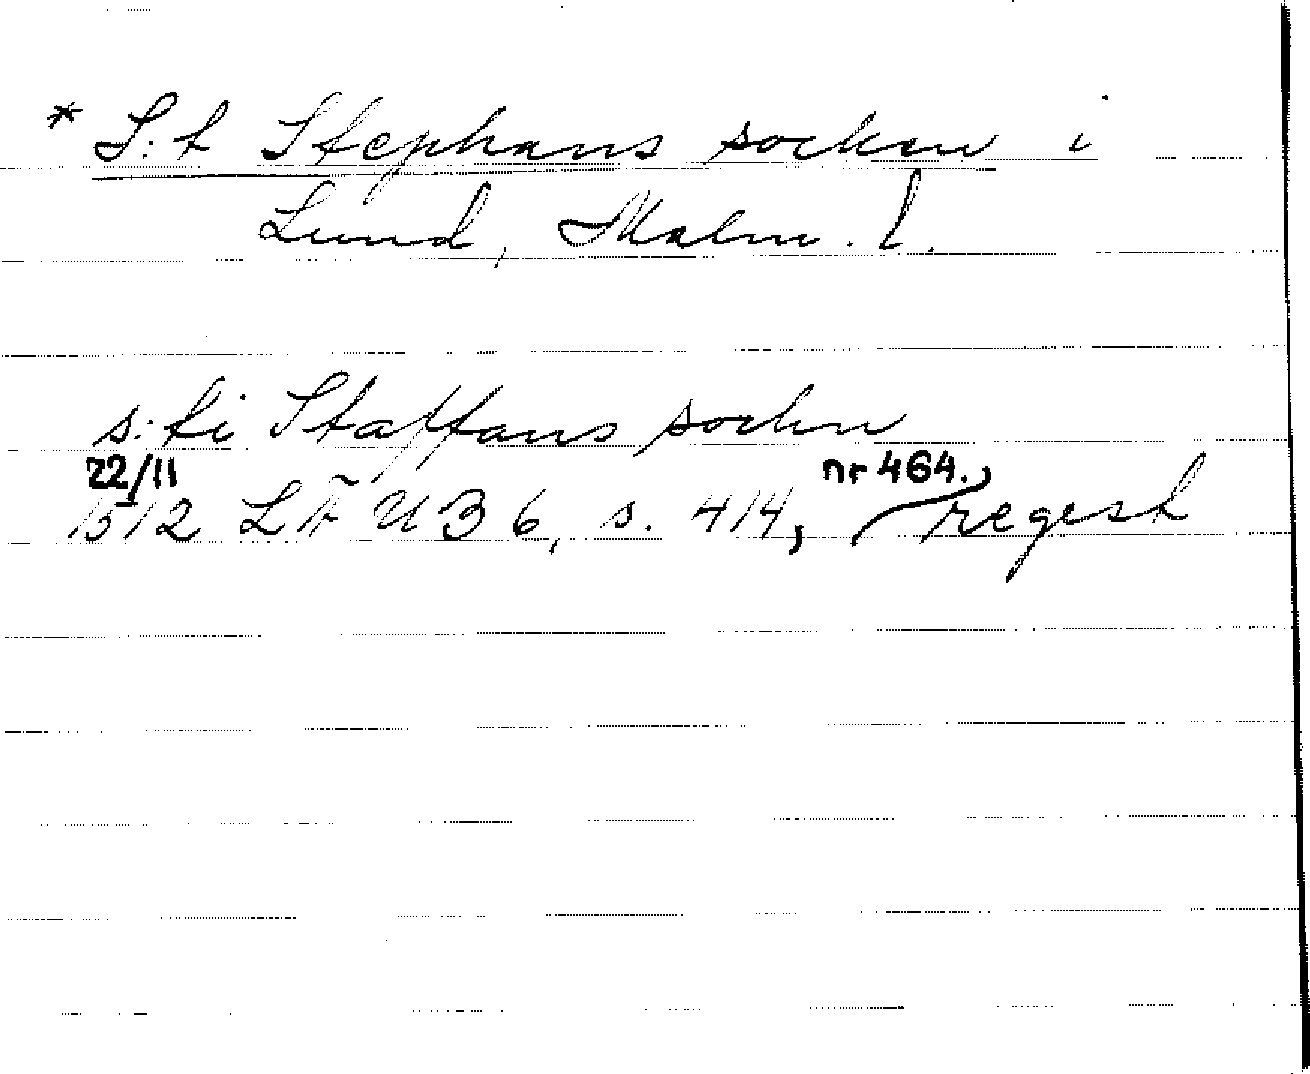 * S:t Stephans socken i
Lund, Malm. l.
s:ti Staffans sochn
22/11 nr 464.
1512 LÄUB 6, s. 414, regest